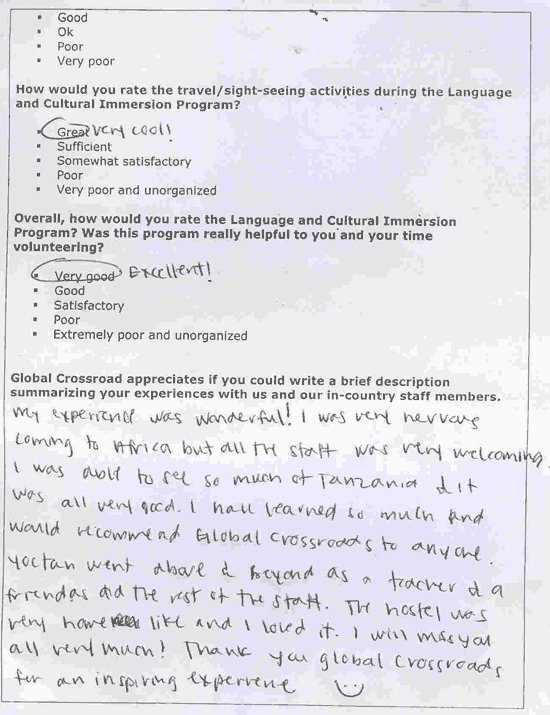 Good
Ok
Poor
Very poor
How would you rate the travel/sight-seeing activities during the Language
and Cultural Immersion Program?
Great very cool!
Sufficient
Somewhat satisfactory
Poor
Very poor and unorganized
Overall, how would you rate the Language and Cultural Immersion
Program? Was this program really helpful to you and your time
volunteering?
Very good Excellent!
Good
Satisfactory
Poor
Extremely poor and unorganized
Global Crossroad appreciates if you could write a brief description
summarizing your experiences with us and our in-country staff members.
My experience was wonderful! I was very nervous
coming to Africa but all the staff was very welcoming.
I was able to see so much of Tanzania & it
was all very good. I have learned so much and
would recommend Global Crossroads to anyone.
Yoctan went above & beyond as a teacher & a
friend as did the rest of the staff. The hostel was
very home like and I loved it. I will miss you
all very much! Thank you global Crossroads
for an inspiring experience